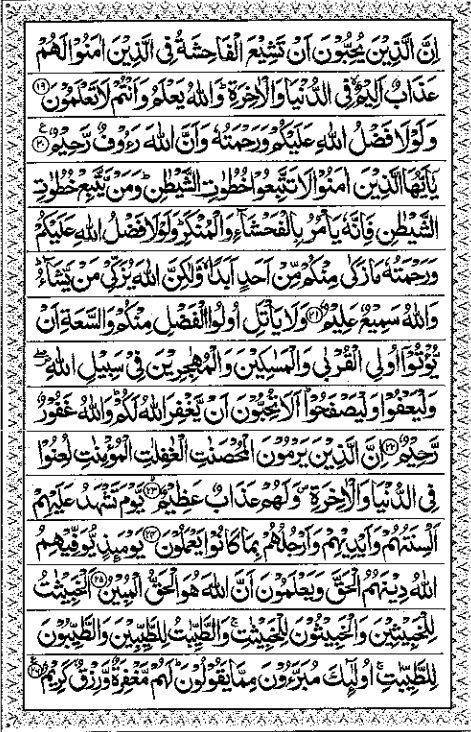 اِنَّ الَّذِيْنَ يُحِبُّوْنَ اَنْ تَشِيْعَ الْفَاحِشَةُ فِى الَّذِيْنَ اٰمَنُوْا لَهُمْ
عَذَابٌ اَلِيْمٌ فِى الدُّنْيَا وَالْاٰخِرَةِ ؕ وَاللّٰهُ يَعْلَمُ وَاَنْتُمْ لَا تَعْلَمُوْنَ ۱۹
وَلَوْلَا فَضْلُ اللّٰهِ عَلَيْكُمْ وَرَحْمَتُهٗ وَاَنَّ اللّٰهَ رَءُوْفٌ رَّحِيْمٌ ۲۰
يٰۤاَيُّهَا الَّذِيْنَ اٰمَنُوْا لَا تَتَّبِعُوْا خُطُوٰتِ الشَّيْطٰنِ ؕ وَمَنْ يَّتَّبِعْ خُطُوٰتِ
الشَّيْطٰنِ فَاِنَّهٗ يَاْمُرُ بِالْفَحْشَآءِ وَالْمُنْكَرِ ؕ وَلَوْلَا فَضْلُ اللّٰهِ عَلَيْكُمْ
وَرَحْمَتُهٗ مَا زَكٰى مِنْكُمْ مِّنْ اَحَدٍ اَبَدًا ۙ وَّلٰكِنَّ اللّٰهَ يُزَكِّىْ مَنْ يَّشَآءُ ؕ
وَاللّٰهُ سَمِيْعٌ عَلِيْمٌ ۲۱ وَلَا يَاْتَلِ اُولُوا الْفَضْلِ مِنْكُمْ وَالسَّعَةِ اَنْ
يُّؤْتُوْۤا اُولِى الْقُرْبٰى وَالْمَسٰكِيْنَ وَالْمُهٰجِرِيْنَ فِىْ سَبِيْلِ اللّٰهِ ۖ
وَلْيَعْفُوْا وَلْيَصْفَحُوْا ؕ اَلَا تُحِبُّوْنَ اَنْ يَّغْفِرَ اللّٰهُ لَكُمْ ؕ وَاللّٰهُ غَفُوْرٌ
رَّحِيْمٌ ۲۲ اِنَّ الَّذِيْنَ يَرْمُوْنَ الْمُحْصَنٰتِ الْغٰفِلٰتِ الْمُؤْمِنٰتِ لُعِنُوْا
فِى الدُّنْيَا وَالْاٰخِرَةِ ۪ وَلَهُمْ عَذَابٌ عَظِيْمٌ ۲۳ يَّوْمَ تَشْهَدُ عَلَيْهِمْ
اَلْسِنَتُهُمْ وَاَيْدِيْهِمْ وَاَرْجُلُهُمْ بِمَا كَانُوْا يَعْمَلُوْنَ ۲۴ يَوْمَئِذٍ يُّوَفِّيْهِمُ
اللّٰهُ دِيْنَهُمُ الْحَقَّ وَيَعْلَمُوْنَ اَنَّ اللّٰهَ هُوَ الْحَقُّ الْمُبِيْنُ ۲۵ اَلْخَبِيْثٰتُ
لِلْخَبِيْثِيْنَ وَالْخَبِيْثُوْنَ لِلْخَبِيْثٰتِ ۚ وَالطَّيِّبٰتُ لِلطَّيِّبِيْنَ وَالطَّيِّبُوْنَ
لِلطَّيِّبٰتِ ۚ اُولٰٓئِكَ مُبَرَّءُوْنَ مِمَّا يَقُوْلُوْنَ ؕ لَهُمْ مَّغْفِرَةٌ وَّرِزْقٌ كَرِيْمٌ ۲۶